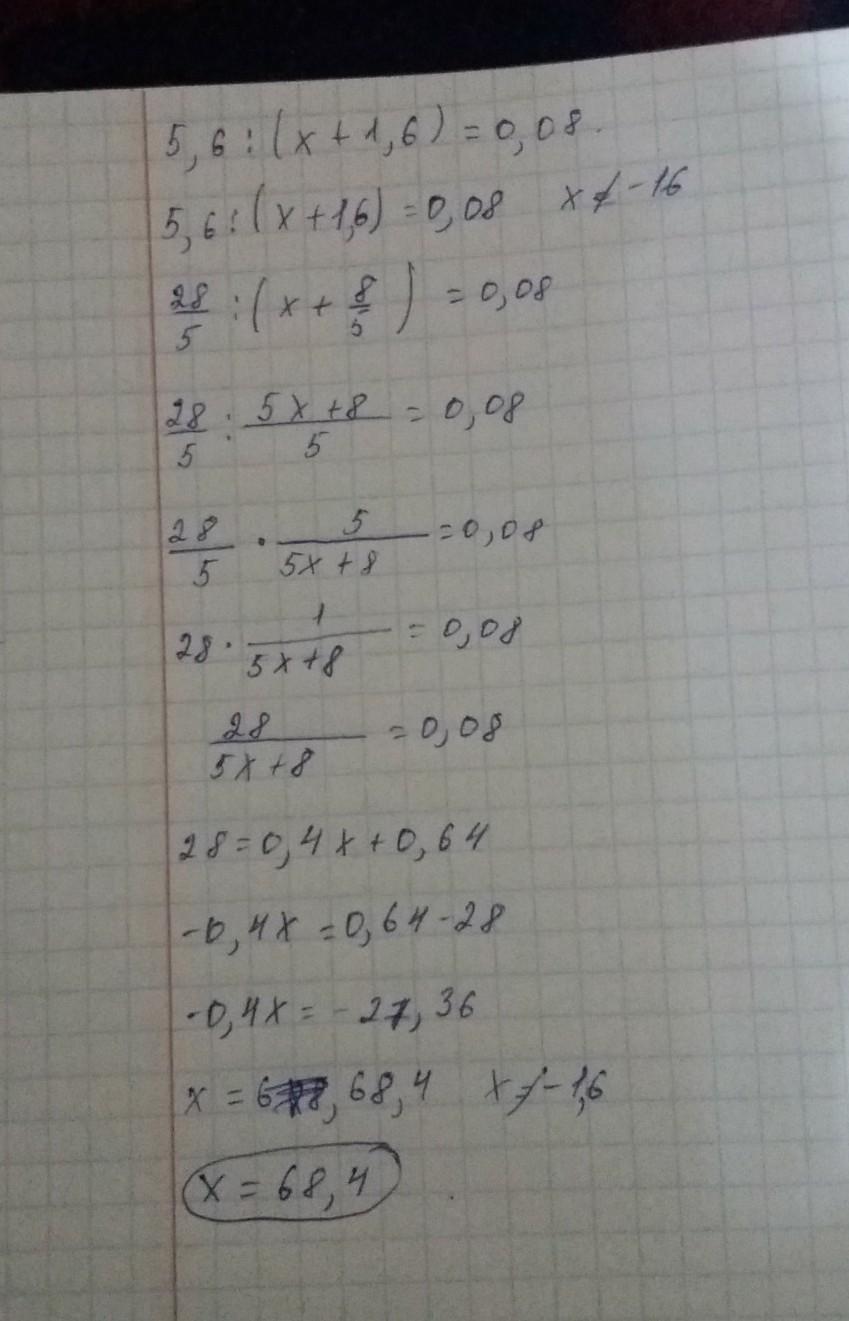 5,6:(x+1,6)=0,08.
5,6:(x+1,6)=0,08 x≠-16
28/5 :(x+ 8/5) =0,08
28/5 : (5x+8)/5 = 0,08
28/5 · 5/(5x+8) =0,08
28· 1/(5x+8) = 0,08
28/(5x+8) =0,08
28=0,4x+0,64
-0,4x=0,64-28
-0,4x=-27,36
x=6 , 68,4 x≠-1,6
x=68,4